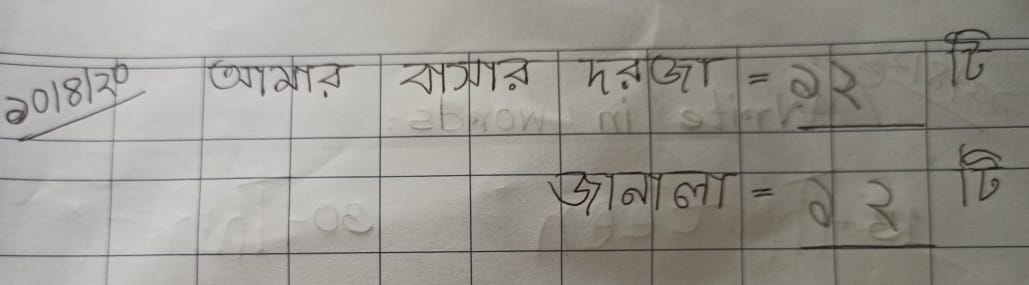 ১০|৪|২০ আমার বাসার দরজা = ১২ টি
জানালা = ১২ টি